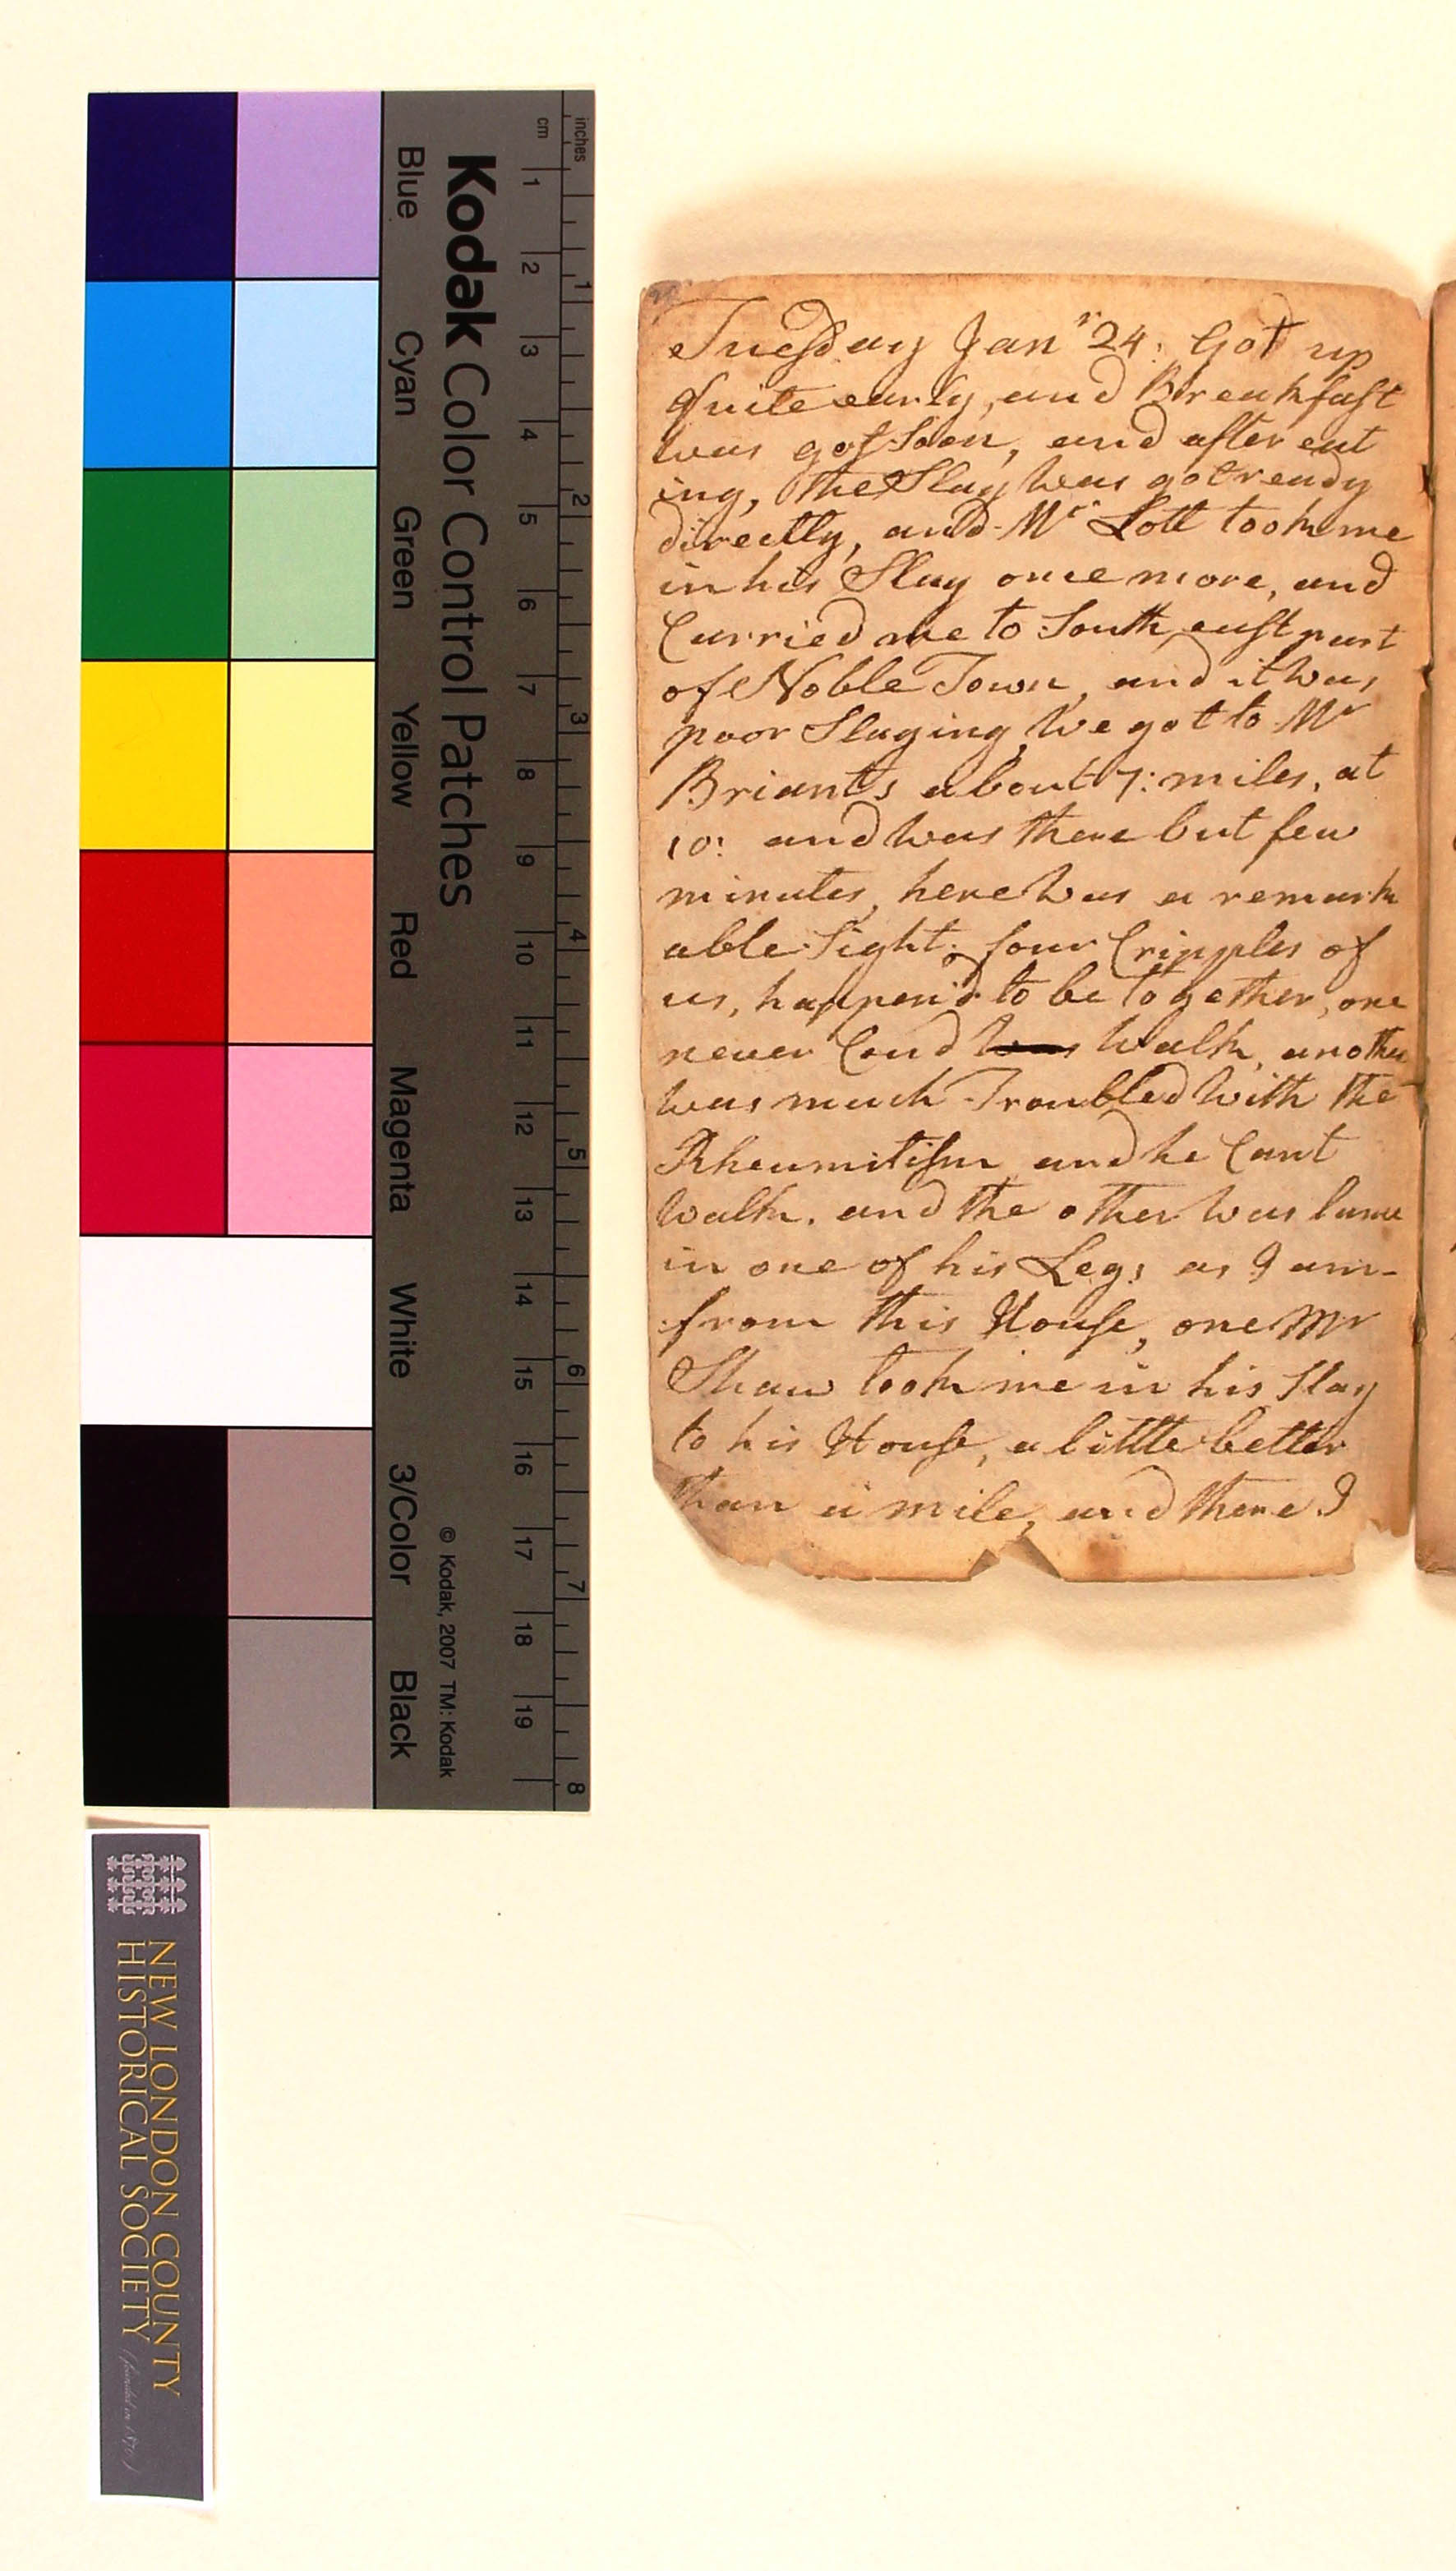 Tuesday Janr 24: Got up
Quite early, and Breakfast
was got Soon, and after eat
ing, the Slay was got ready
directly, and Mr Lott took me
in his Slay once more, and
Carried me to South east part
of Noble Town, and it was
poor Slaying, We got to Mr
Briants about 7: miles, at
10: and was there but few
minutes, here was a remark
able Sight; four Cripples of
us, happen'd to be together, one
never Coud was Walk, another
was much Troubled With the
Rheumitism and he Cant
Walk, and the other Was lame
in one of his Legs as I am-
from this House, one Mr
Shaw took me in his Slay
to his House, a little better
than a mile, and there I
inches
cm
1 2 3 4 5 6 7 8 9 10 11 12 13 14 15 16 17 18 19
1 2 3 4 5 6 7 8
Kodak Color Control Patches
© Kodak, 2007 TM: Kodak
Blue Cyan Green Yellow Red Magenta White 3/Color Black
NEW LONDON COUNTY
HISTORICAL SOCIETY (founded in 1870)